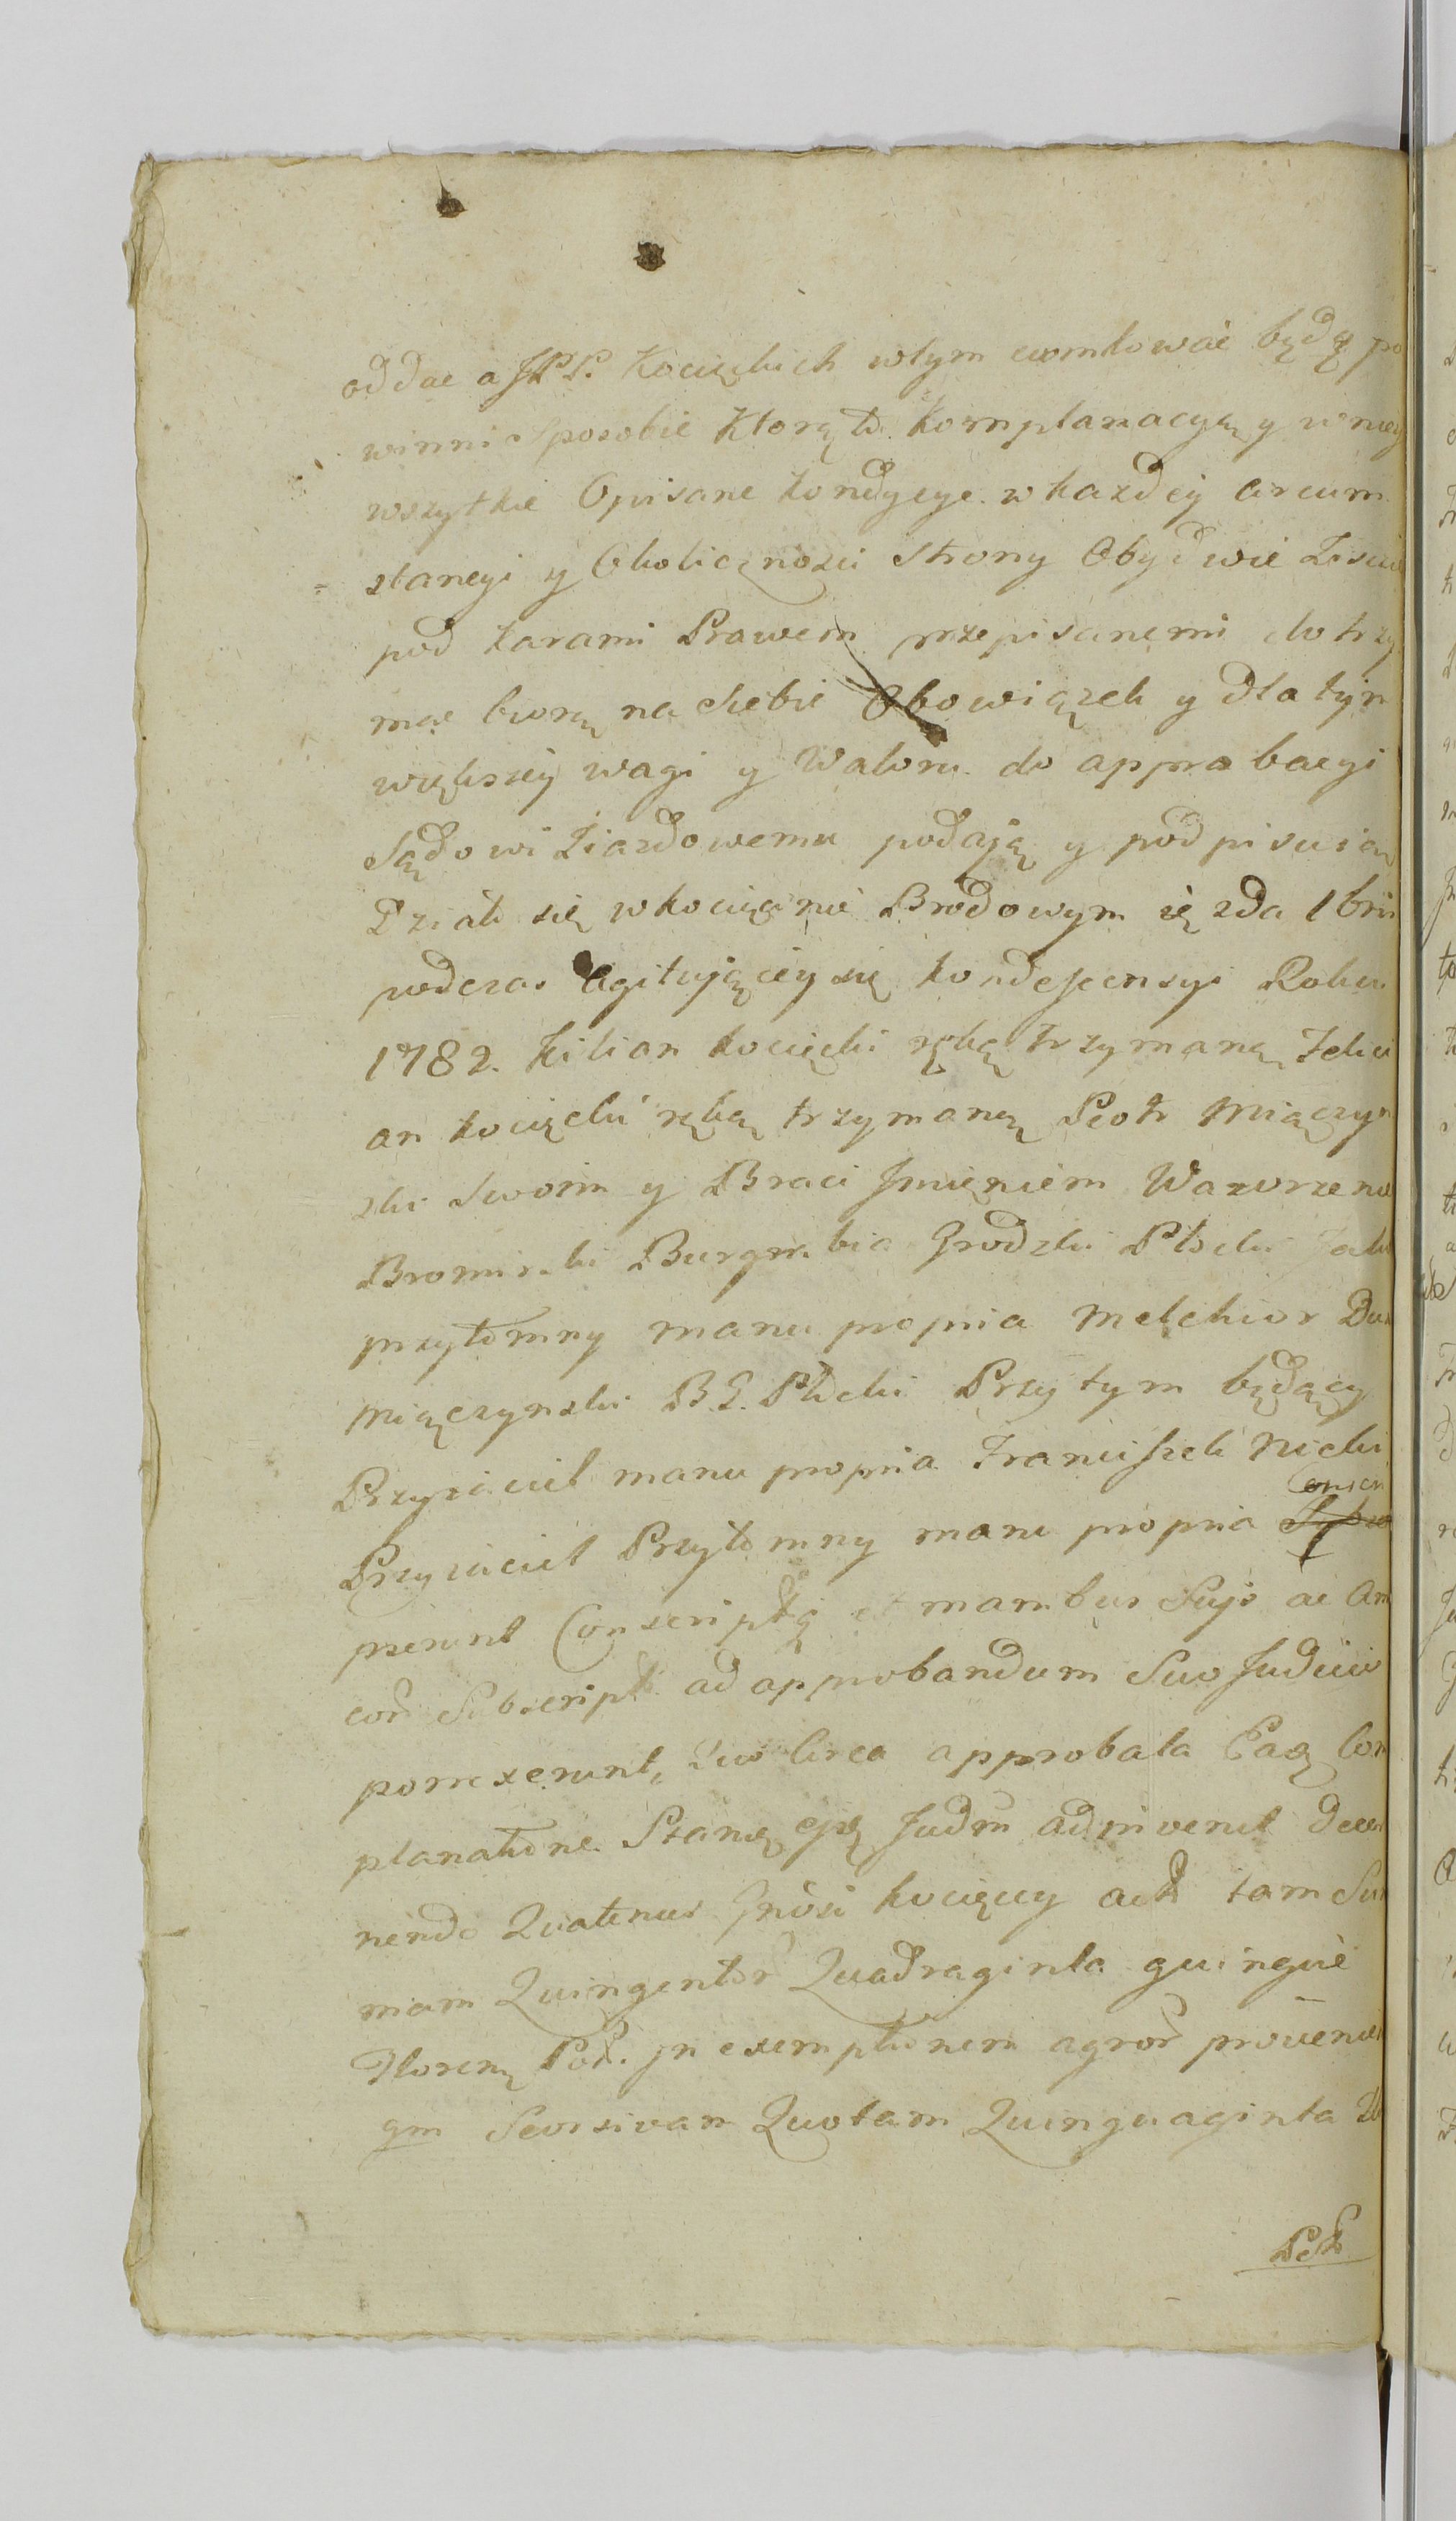 oddac a JPP. Kocięckich wtym ewinkowac będą po
winni sposobie Ktorą to Komplanacyą y w niey
wszytkie Opisane kondycye w kazdey circum
= stancyi y Okolicznosci Strony Obydwie Ziscic
pod karami Prawem przepisanemi dotrzy
mac biorą na siebie Obowiązek y dla tym
większey wagi y Waloru do approbacyi
Sądowi Ziazdowemu podaią y podpisuią
Działo się w Kocięcinie Brodowym
podczas Agituiącey się kondescensyi Roku
1782. Kilian Kocięcki ręką trzymaną Felici
an Kocięcki ręką trzymaną Piotr Miączyn
ski Swoim y Braci Jmieniem Wawrzeniec
Bromirski Burgrabia Grodzki Płocki
przytomny manu propria Melchior
Miączynski B. G. Płocki Przytym będący
Przyiaciel manu propria Franciszek Nicki
Przyiaciel Przytomny manu propria Conscri
pserunt Conscriptą et manibus Suis ac Ami
cor Subscript ad approbandum Suo Judicio
porrexerunt, Quo circa approbata Eaq Com
planatione Stanę Judm adinvenit decer
nendo Quatenus Gnosi Kocięccy act tam Sum
mam Quingentor Quadraginta quinque
Floreny Pol. in exemptionem agror provenien
qm Seorsivam Quotam Quinquaginta